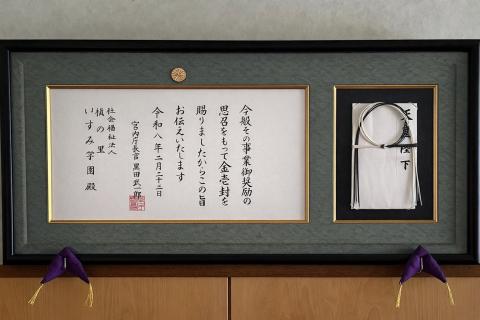 今般その事業御奨励の
思召をもって金壱封を
賜りましたからこの旨
お伝えいたします
令和八年二月二十三日
宮内庁長官 黒田武一郎
社会福祉法人
槙の里
いすみ学園 殿
天皇陛下